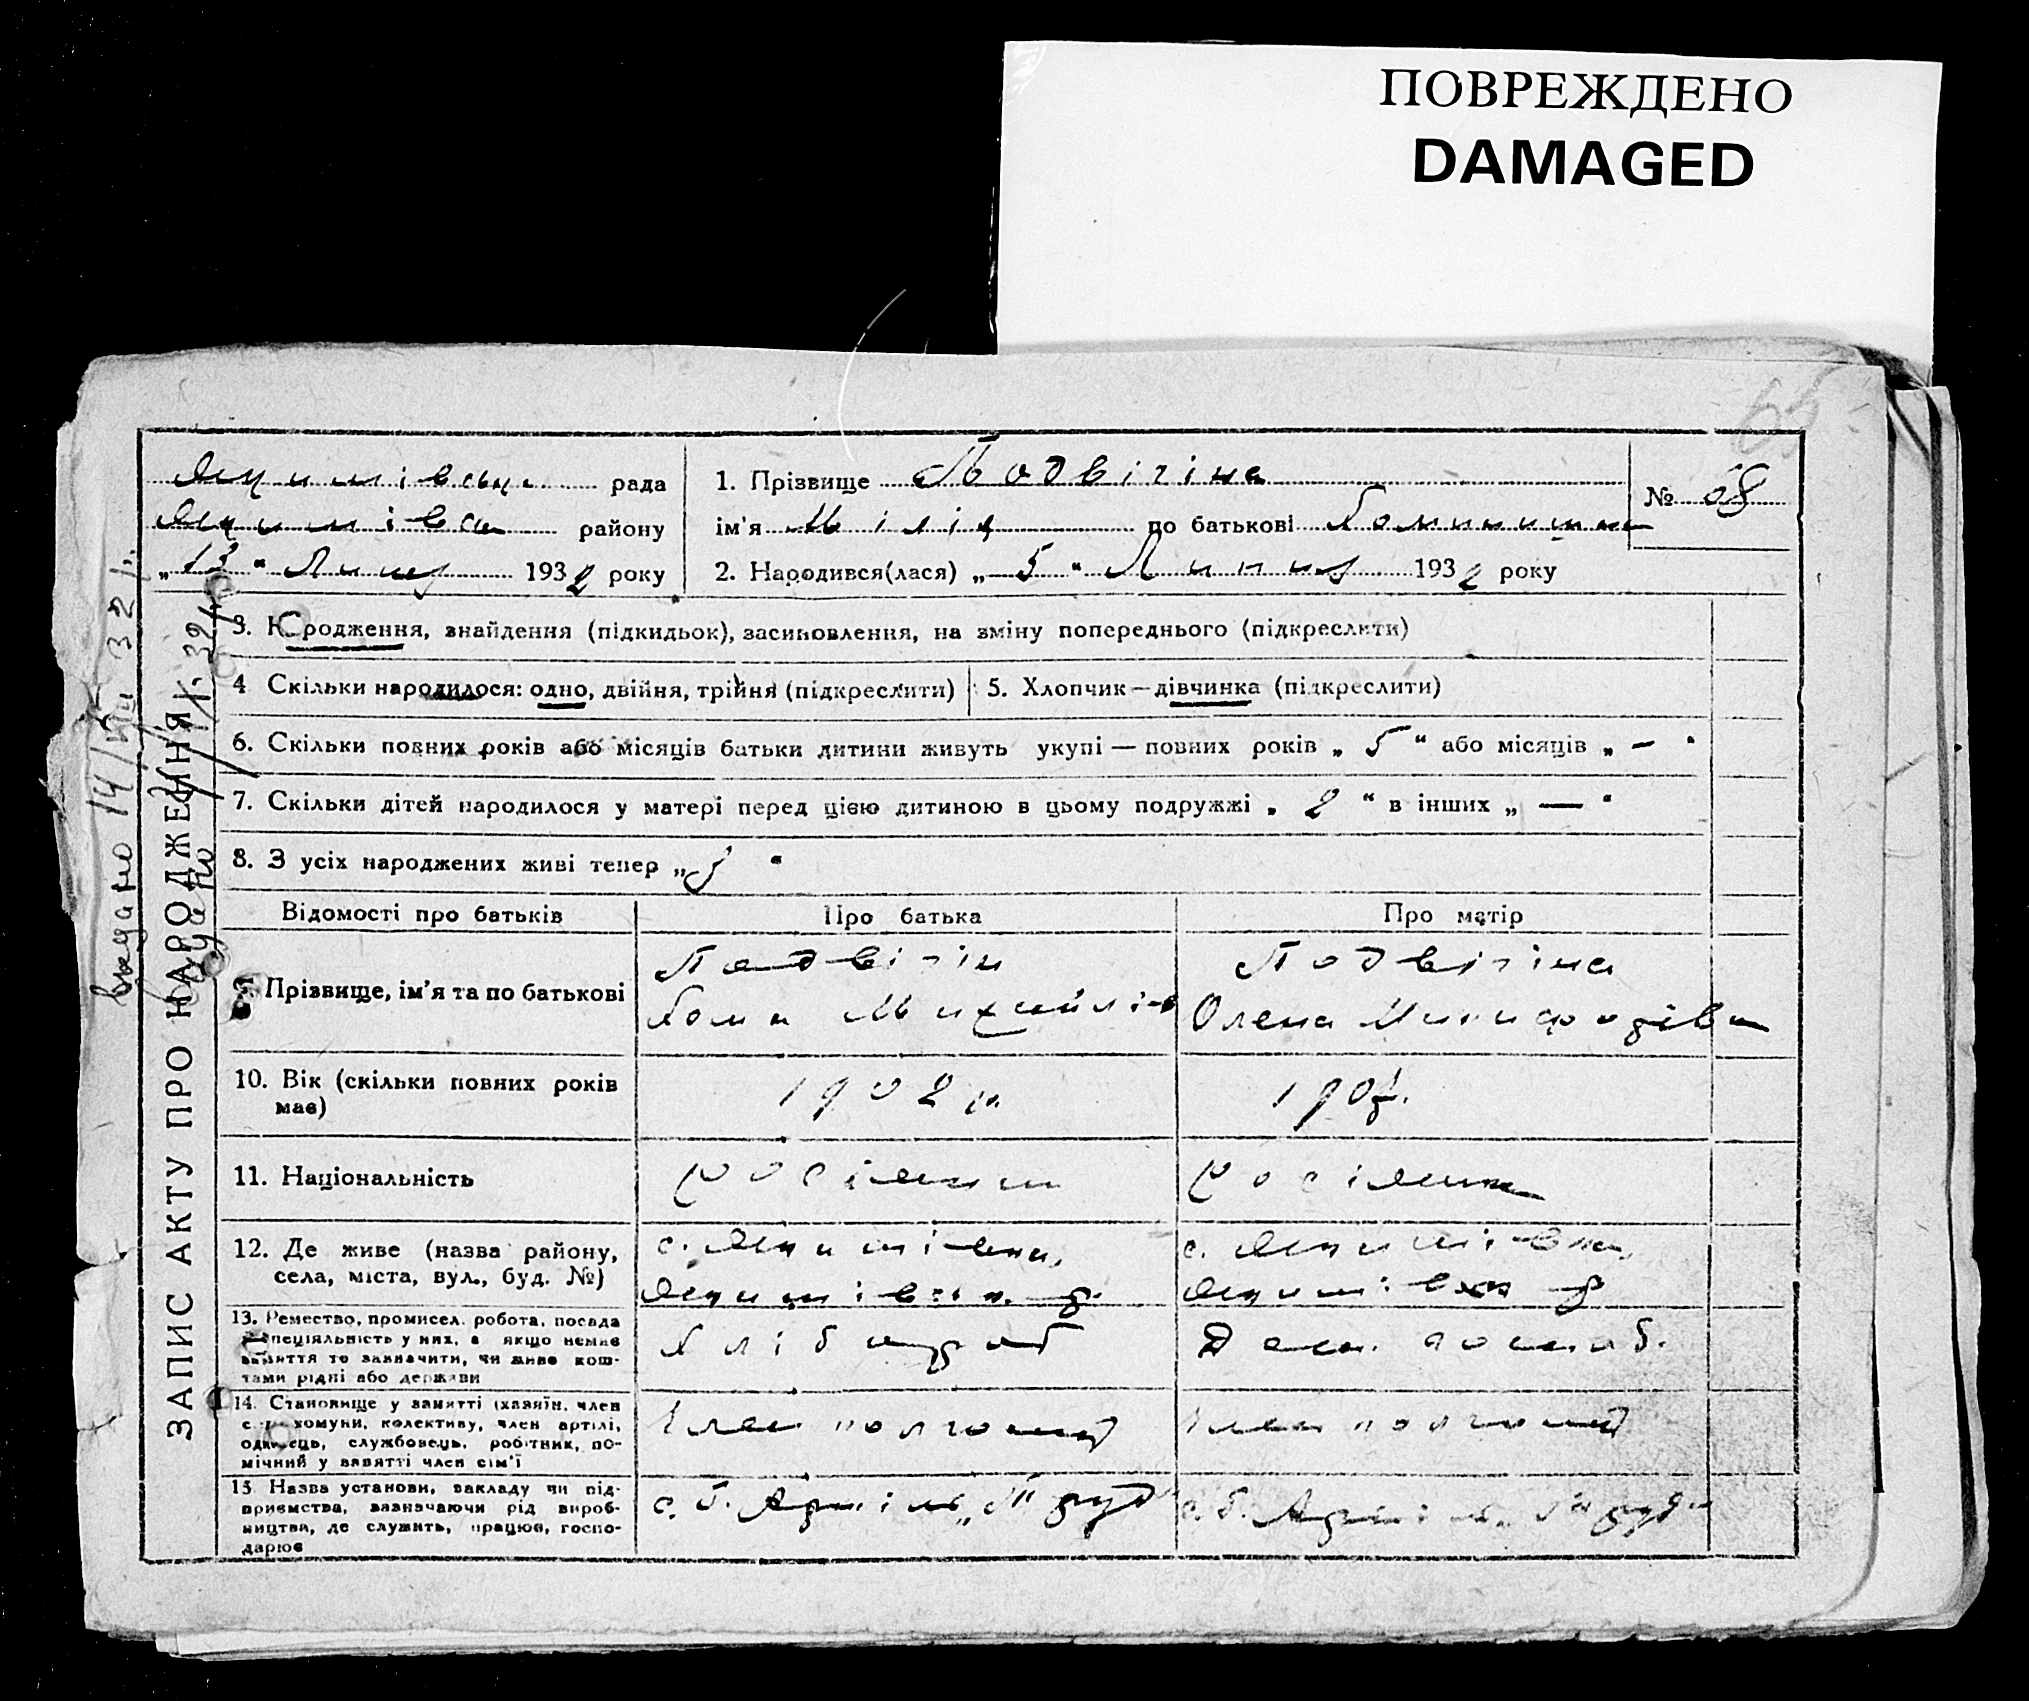 ПОВРЕЖДЕНО
DAMAGED
рада
району
„13“ Липця 1932 року
1. Прізвище Подвігіна
ім'я по батькові
№ 68
2. Народився(лася) „5“ Липня 1932 року
ЗАПИС АКТУ ПРО НАРОДЖЕННЯ
видано 14/VIII 32 р.
3. Народження, знайдення (підкидьок), засиновлення, на зміну попереднього (підкреслити)
4 Скільки народилося: одно, двійня, трійня (підкреслити)
5. Хлопчик — дівчинка (підкреслити)
6. Скільки повних років або місяців батьки дитини живуть укупі — повних років „5“ або місяців „—“
7. Скільки дітей народилося у матері перед цією дитиною в цьому подружжі „2“ в інших „—“
8. З усіх народжених живі тепер „3“
Відомості про батьків
Про батька
Про матір
9. Прізвище, ім'я та по батькові
Подвігін
Хома Михайлів
Подвігіна
Олена Никифорівна
10. Вік (скільки повних років має)
1902
190
11. Національність
росіянин
росіянка
12. Де живе (назва району,
села, міста, вул., буд. №)
с. Якимівка,
р.
с. Якимівка,
р
13. Ремество, промисел, робота, посада
спеціяльність у них, а якщо немає
заняття то зазначити, чи живе кош-
тами рідні або держави
Хлібороб
14. Становище у занятті (хазяїн, член
комуни, колективу, член артілі,
одинець, службовець, робітник, по-
мічний у занятті член сім'ї
Член колгоспу
Член колгоспу
15. Назва установи, закладу чи під-
приємства, зазначаючи рід вироб-
ництва, де служить, працює, госпо-
дарює
с. г. Артіль „Труд“
с. г. Артіль „Труд“